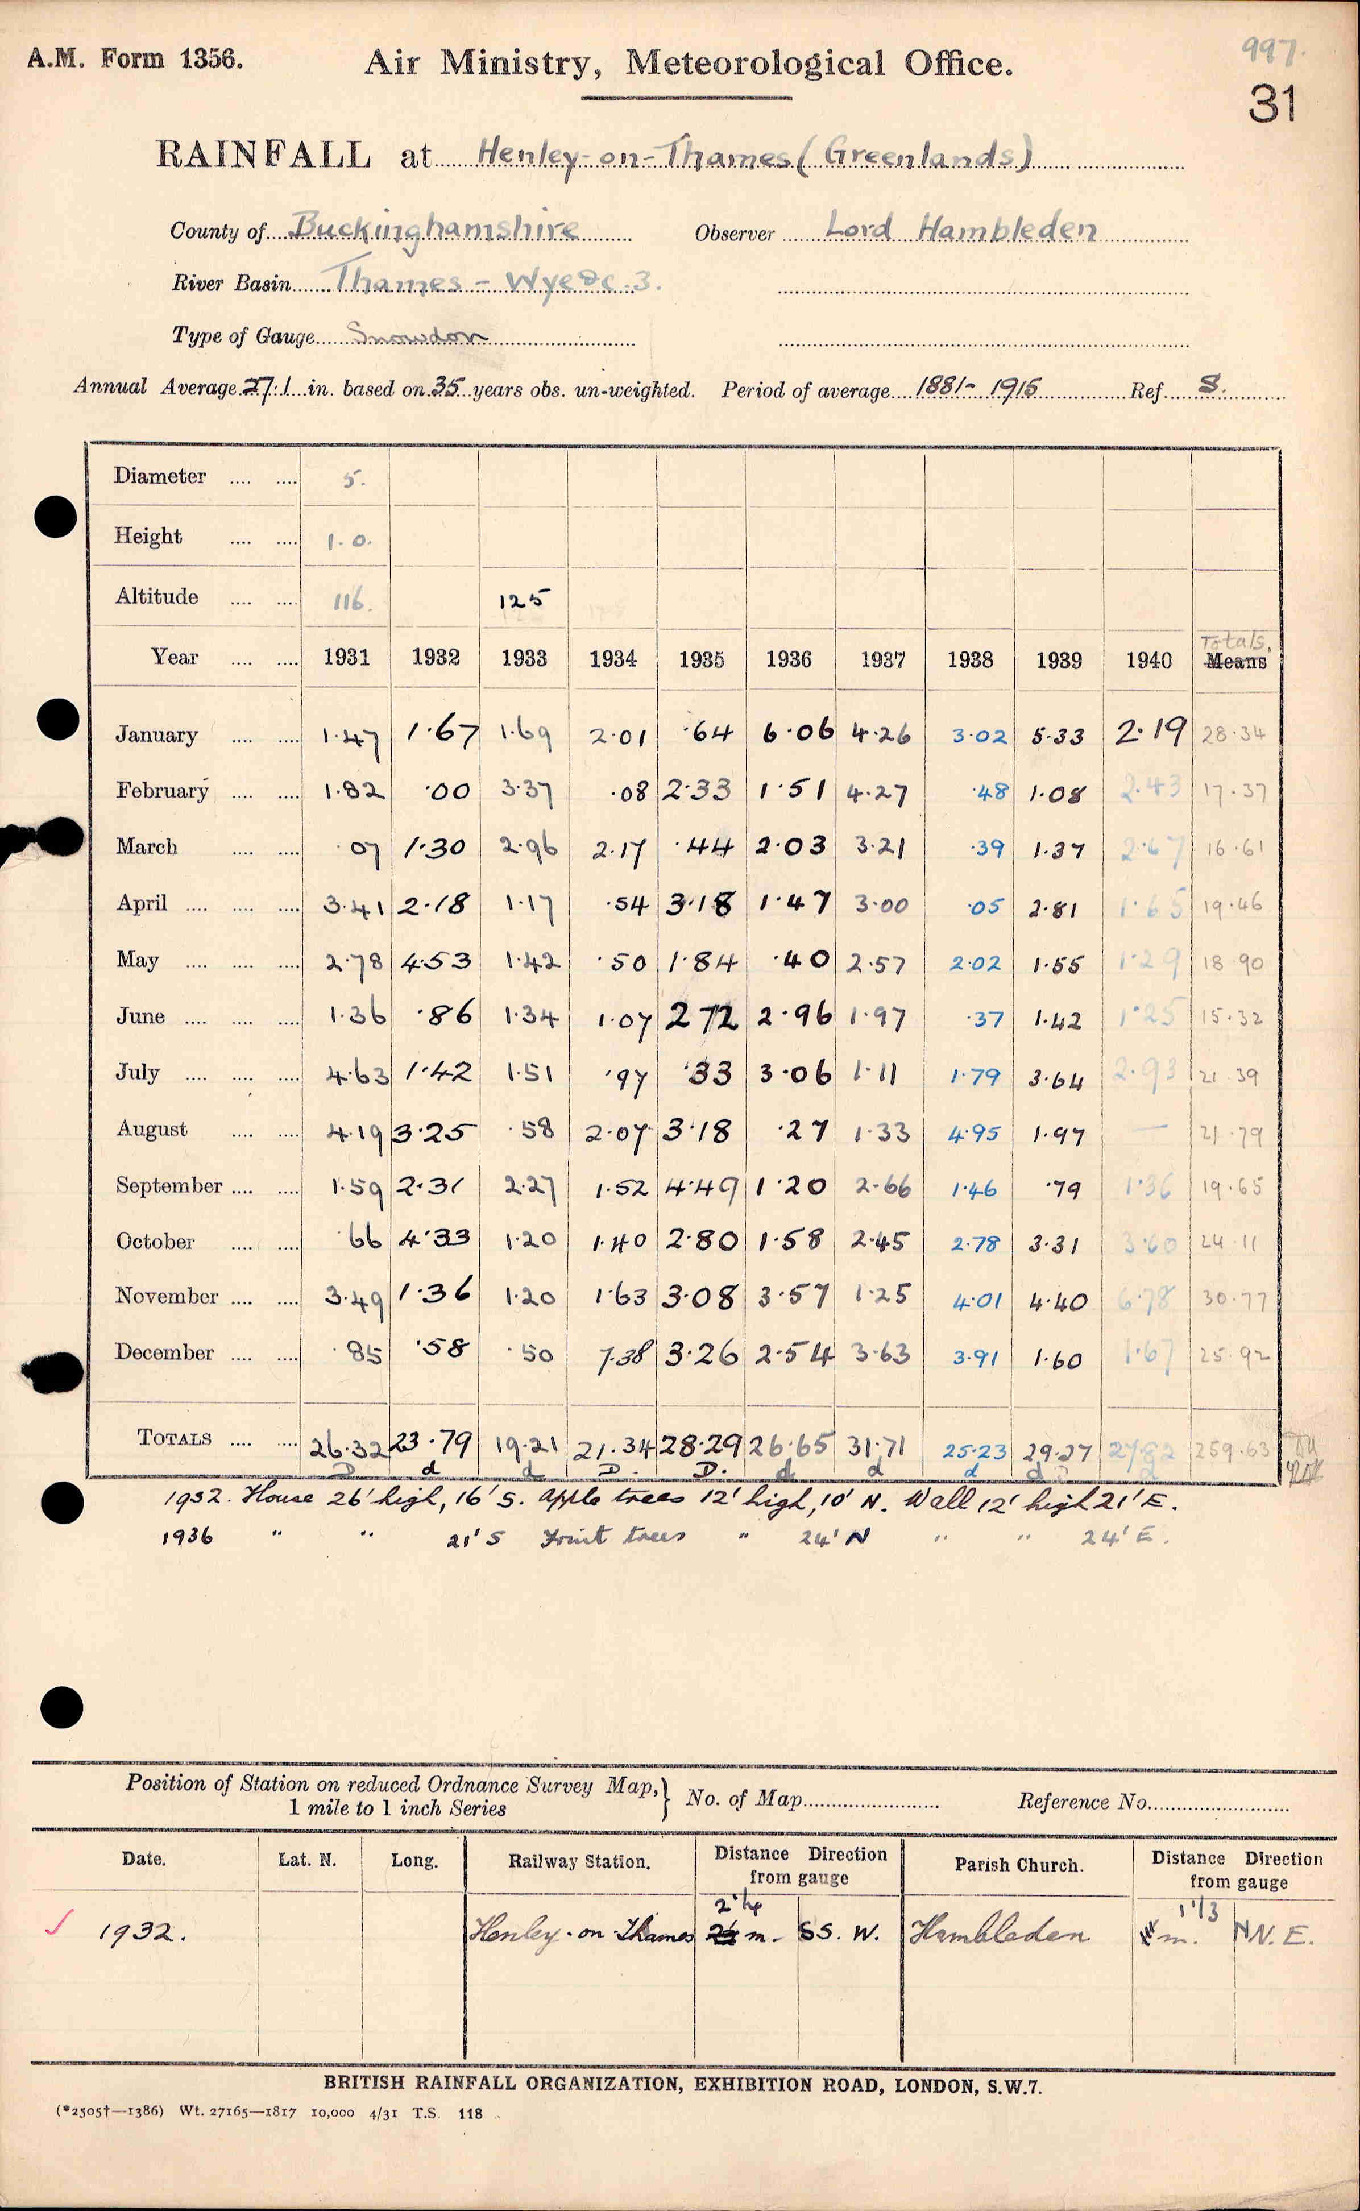 A.M. Form 1356.
Air Ministry, Meteorological Office.
997.
31
RAINFALL at Henley-on-Thames (Greenlands)
County of Buckinghamshire Observer Lord Hambleden
River Basin Thames - Wye &c. 3.
Type of Gauge Snowdon
Annual Average 27.1 in. based on 35 years obs. un-weighted. Period of average 1881-1915 Ref. S.
Diameter .... .... 5.
Height .... .... 1.0.
Altitude .... .... 116. 125
Totals.
Year .... .... 1931 1932 1933 1934 1935 1936 1937 1938 1939 1940 Means
January .... .... 1.47 1.67 1.69 2.01 .64 6.06 4.26 3.02 5.33 2.19 28.34
February .... .... 1.82 .00 3.37 .08 2.33 1.51 4.27 .48 1.08 2.43 17.37
March .... .... .07 1.30 2.96 2.17 .44 2.03 3.21 .39 1.37 2.67 16.61
April .... .... .... 3.41 2.18 1.17 .54 3.18 1.47 3.00 .05 2.81 1.65 19.46
May .... .... .... 2.78 4.53 1.42 .50 1.84 .40 2.57 2.02 1.55 1.29 18.90
June .... .... .... 1.36 .86 1.34 1.07 2.72 2.96 1.97 .37 1.42 1.25 15.32
July .... .... .... 4.63 1.42 1.51 .97 .33 3.06 1.11 1.79 3.64 2.93 21.39
August .... .... 4.19 3.25 .58 2.07 3.18 .27 1.33 4.95 1.97 — 21.79
September .... .... 1.59 2.31 2.27 1.52 4.49 1.20 2.66 1.46 .79 1.36 19.65
October .... .... .66 4.33 1.20 1.40 2.80 1.58 2.45 2.78 3.31 3.60 24.11
November .... .... 3.49 1.36 1.20 1.63 3.08 3.57 1.25 4.01 4.40 6.78 30.77
December .... .... .85 .58 .50 7.38 3.26 2.54 3.63 3.91 1.60 1.67 25.92
TOTALS .... .... 26.32 23.79 19.21 21.34 28.29 26.65 31.71 25.23 29.27 27.82 259.63
D d d D. D. d d d d d
1932. House 26' high, 16' S. Apple trees 12' high, 10' N. Wall 12' high 21' E.
1936 " " 21' S Fruit trees " 24' N " " 24' E.
Position of Station on reduced Ordnance Survey Map, 1 mile to 1 inch Series } No. of Map Reference No.
Date. Lat. N. Long. Railway Station. Distance Direction from gauge Parish Church. Distance Direction from gauge
2 1/4 1 1/3
✓ 1932. Henley-on-Thames m. SS. W. Hambleden m. NN. E.
BRITISH RAINFALL ORGANIZATION, EXHIBITION ROAD, LONDON, S.W.7.
(*2505†—1386) Wt. 27165—1817 10,000 4/31 T.S. 118